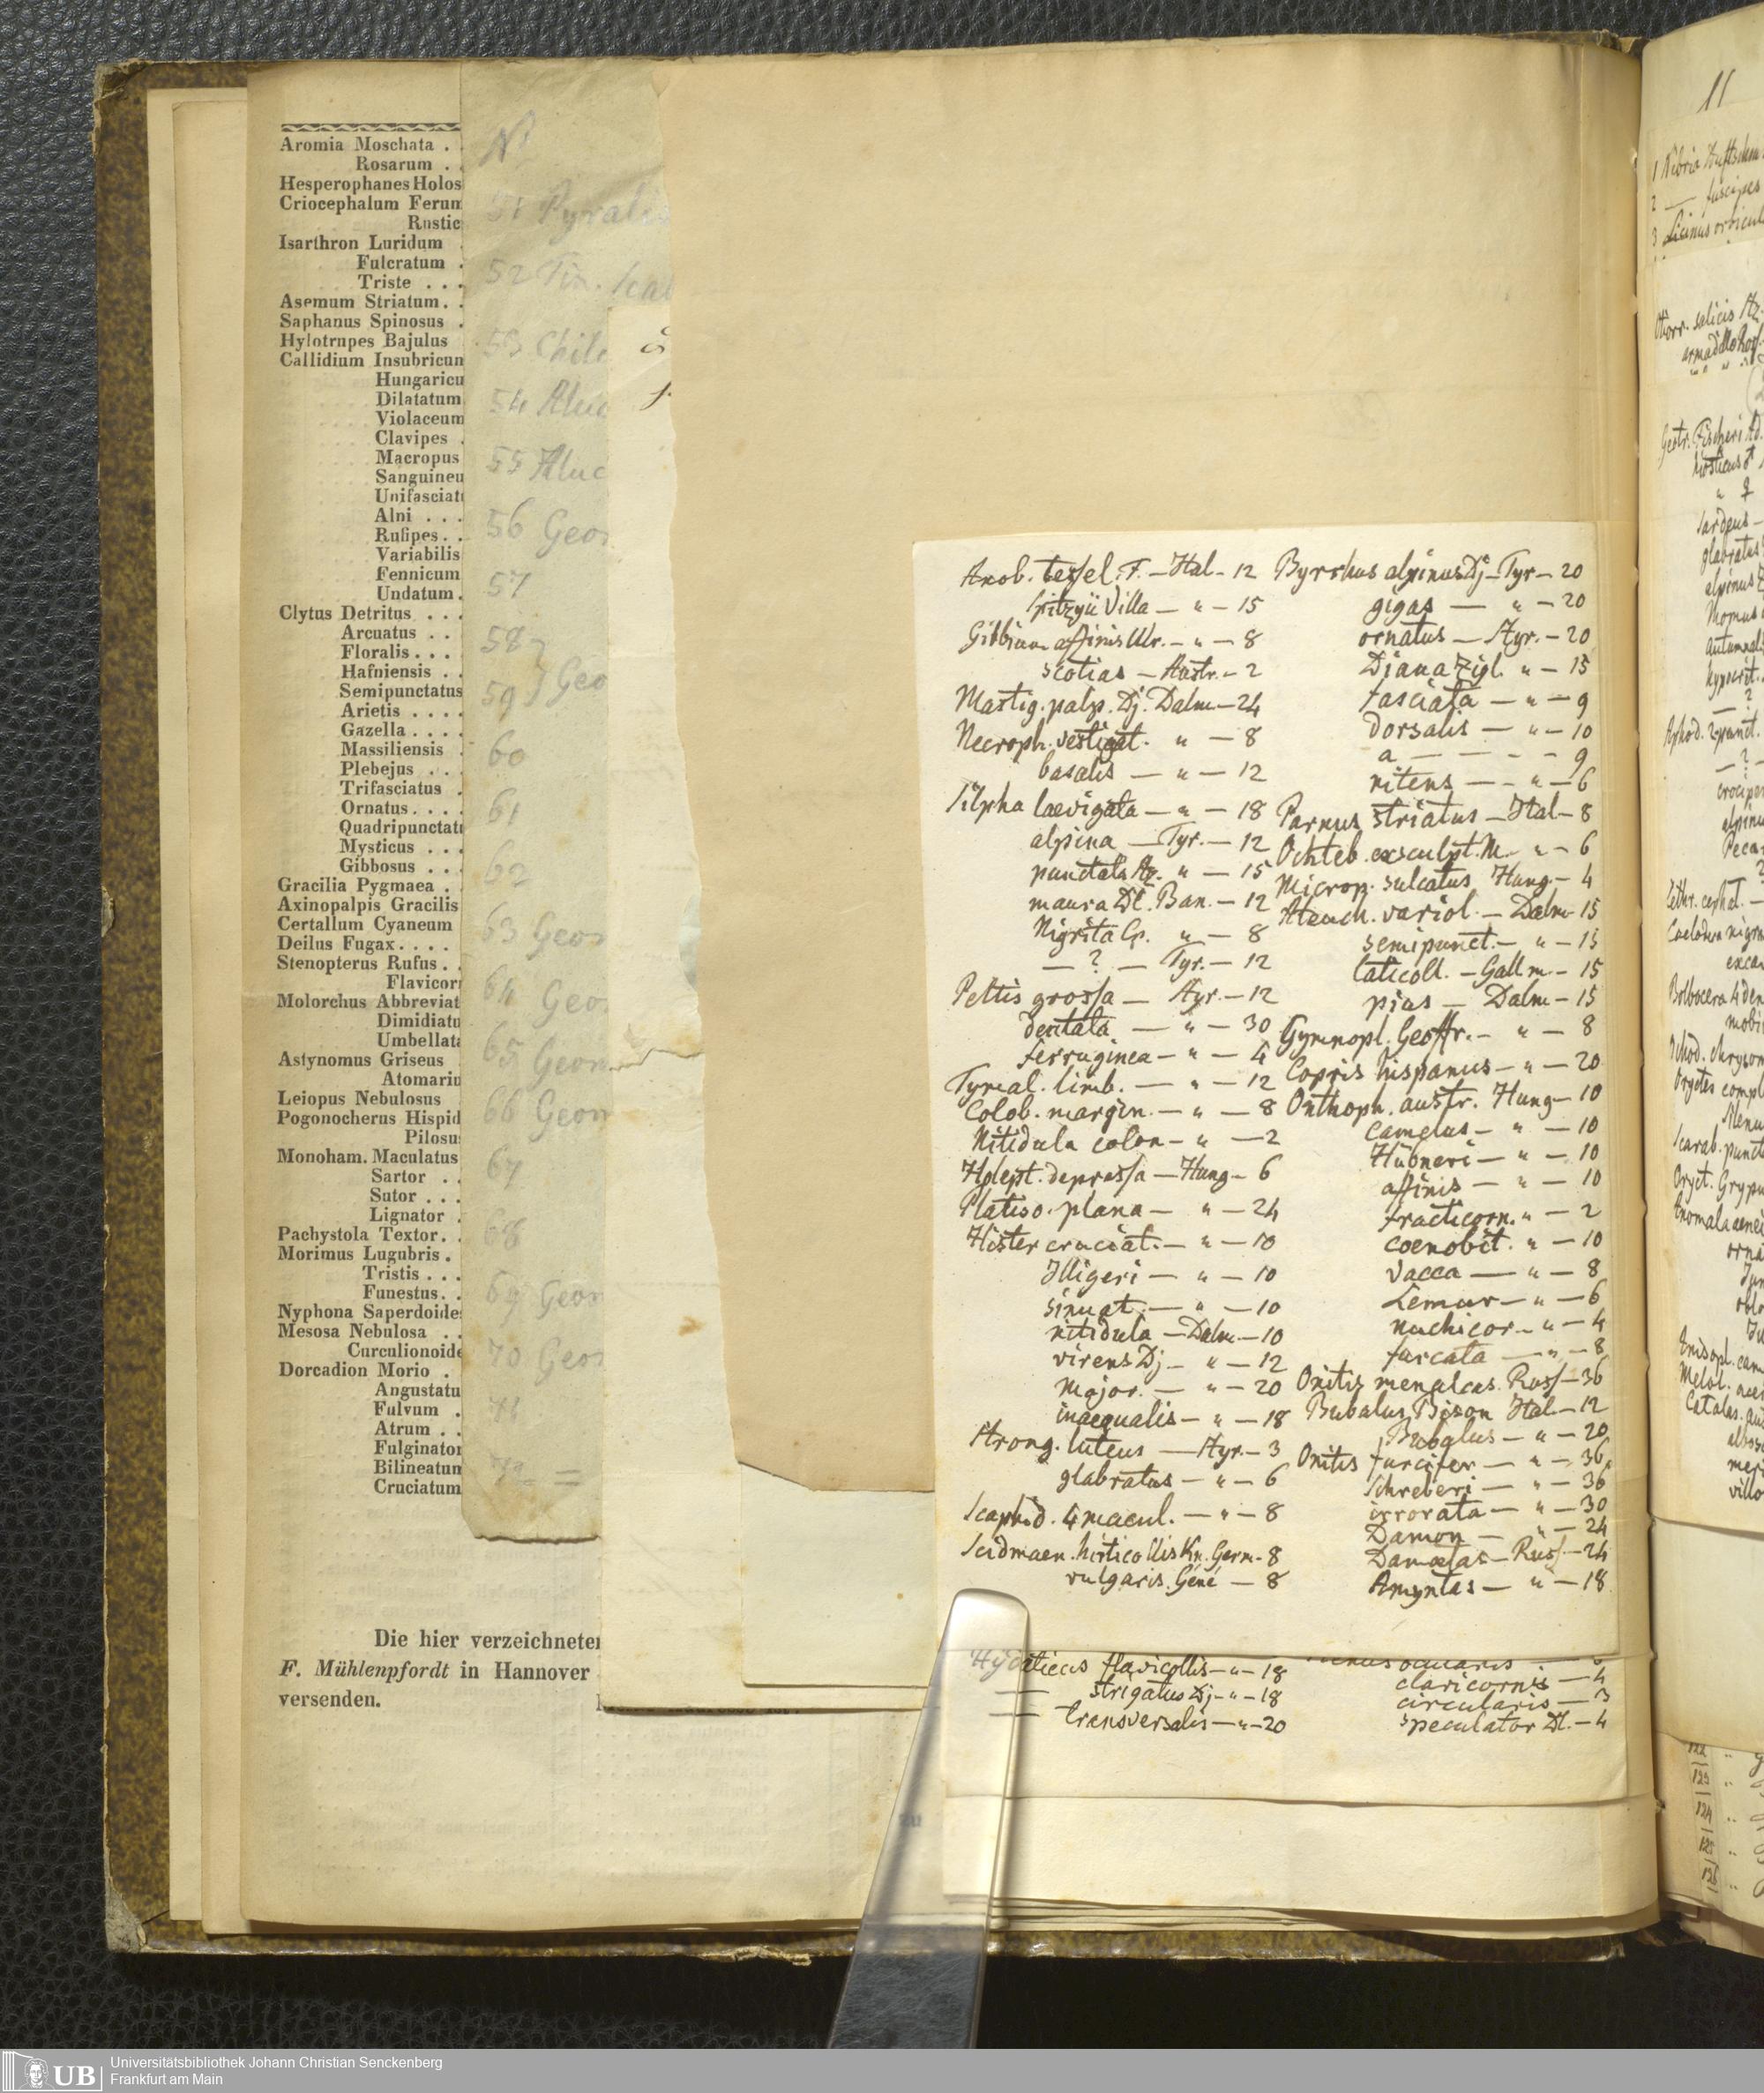 Aromia Moschata . .
Rosarum . .
Hesperophanes Holos
Criocephalum Ferum
Rustic
Isarthron Luridum .
Fulcratum .
Triste . . .
Asemum Striatum . .
Saphanus Spinosus .
Hylotrupes Bajulus
Callidium Insubricun
Hungaricu
Dilatatum
Violaceum
Clavipes .
Macropus
Sanguineu
Unifasciat
Alni . . .
Rufipes . .
Variabilis
Fennicum
Undatum .
Clytus Detritus . . .
Arcuatus . .
Floralis . . .
Hafniensis . .
Semipunctatus
Arietis . . . .
Gazella . . . .
Massiliensis .
Plebejus . . .
Trifasciatus .
Ornatus . . . .
Quadripunctat
Mysticus . . .
Gibbosus . . .
Gracilia Pygmaea . .
Axinopalpis Gracilis
Certallum Cyaneum
Deilus Fugax . . . .
Stenopterus Rufus . .
Flavicor
Molorchus Abbreviat
Dimidiatu
Umbellata
Astynomus Griseus
Atomariu
Leiopus Nebulosus
Pogonocherus Hispid
Pilosu
Monoham. Maculatus
Sartor . .
Sutor . . .
Lignator .
Pachystola Textor . .
Morimus Lugubris .
Tristis . . .
Funestus . .
Nyphona Saperdoide
Mesosa Nebulosa . .
Curculionoide
Dorcadion Morio .
Angustatu
Fulvum .
Atrum . .
Fulginator
Bilineatum
Cruciatum
Die hier verzeichneten
F. Mühlenpfordt in Hannover
versenden.
No
51 Pyralis
52 Tin.
53 Chil
54 Aluc
55 Aluc
56 Geo
57
58
59 } Geo
60
61
62
63 Geo
64 Geo
65 Geom
66 Geom
67
68
69 Geom
70 Geo
71
72 =
Anob. tessel. F. — Ital — 12
Spitzyii Villa — " — 15
Gibbium affinis Ulr. — " — 8
scotias — Austr. — 2
Mastig. palp. Dj. Dalm — 24
Necroph. vestigat. " — 8
basalis — " — 12
Silpha laevigata — " — 18
alpina — Tyr. — 12
punctata Az. " — 15
maura Dl. Ban. — 12
Nigrita Cr. " — 8
— ? — Tyr. — 12
Peltis grossa — Styr. — 12
dentata — " — 30
ferruginea — " — 4
Tymal. limb. — " — 12
Colob. margin. — " — 8
Nitidula colon — " — 2
Holept. depressa — Hung — 6
Platiso. plana — " — 24
Hister cruciat. — " — 10
Illigeri — " — 10
sinuat. — " — 10
nitidula — Dalm — 10
virens Dj — " — 12
major. — " — 20
inaequalis — " — 18
Strong. luteus — Styr. — 3
glabratus — " — 6
Scaphid. 4 macul. — " — 8
Scidmaen. hirticollis Kn. Germ — 8
vulgaris. Géné — 8
Byrrhus alpinus Dj — Tyr — 20
gigas — " — 20
ornatus — Styr. — 20
Diana Zigl. " — 15
fasciata — " — 9
dorsalis — " — 10
a — — — 9
nitens — " — 6
Parnus striatus — Ital — 8
Ochteb. exsculpt. M. " — 6
Microp. sulcatus Hung — 4
Ateuch. variol. — Dalm — 15
semipunct. — " — 15
laticoll. — Gall m. — 15
pius — Dalm — 15
Gymnopl. Geoffr. — " — 8
Copris hispanus — " — 20
Onthoph. austr. Hung — 10
camelus — " — 10
Hübneri — " — 10
affinis — " — 10
fracticorn. " — 2
coenobit. " — 10
vacca — " — 8
Lemur — " — 6
nuchicor — " — 4
furcata — " — 8
Onitis menalcas. Russ — 36
Bubalus Bison Ital — 12
Bubalus — " — 20
Onitis furcifer — " — 36
Schreberi — " — 36
irrorata — " — 30
Damon — " — 24
Damoetas — Russ — 24
Amyntas — " — 18
Hydaticus flavicollis — " — 18
— strigatus Dj — " — 18
— transversalis — " — 20
claricornis — 4
circularis — 3
speculator Dl. — 4
11
2 — fuscipes
3 Licinus orbicul
Otiorr. salicis
Geotr. Fischeri
glabratus
alpinus
Momus
autumnal
hypocrit.
Aphod. 2 punct.
— ? —
alpinu
Bolbocera 4 den
mobi
Oryctes comp
Scarab. punct
Oryct. Gryp
Anomala aenea
Anisopl. cam
124
125
126
UB Universitätsbibliothek Johann Christian Senckenberg
Frankfurt am Main